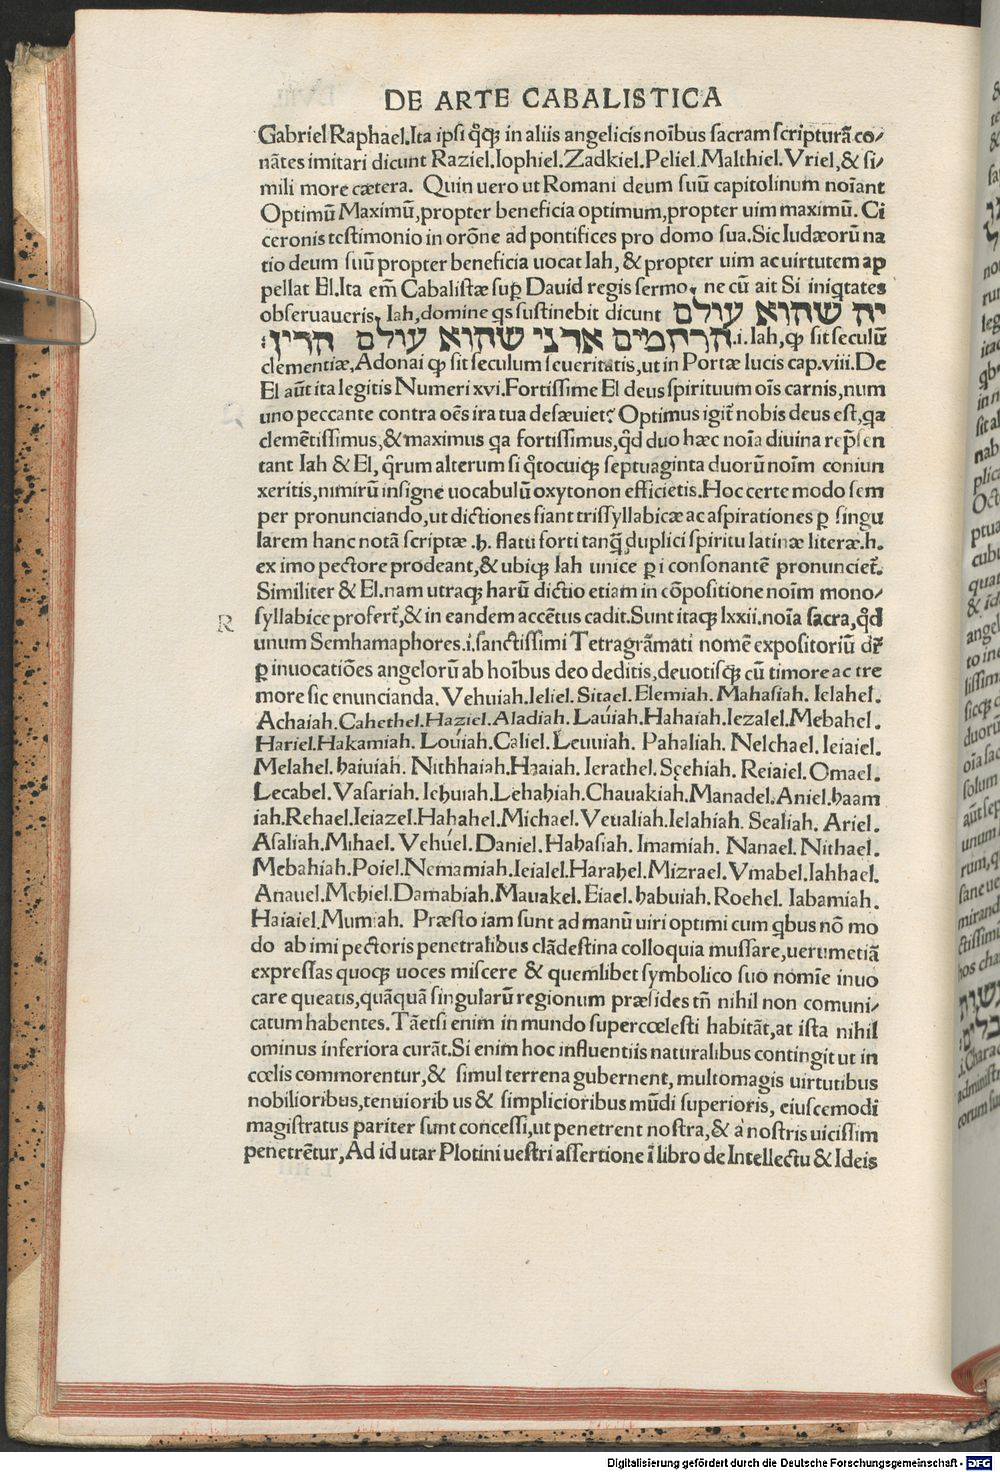 DE ARTE CABALISTICA
Gabriel Raphael.Ita ipsi q̊q̃ in aliis angelicis noĩbus sacram scripturã co⸗
nãtes imitari dicunt Raziel.Iophiel.Zadkiel.Peliel.Malthiel.Vriel,& si⸗
mili more cætera. Quin uero ut Romani deum suũ capitolinum noĩant
Optimũ Maximũ,propter beneficia optimum,propter uim maximũ. Ci
ceronis testimonio in orõne ad pontifices pro domo sua.Sic Iudæorũ na
tio deum suũ propter beneficia uocat Iah, & propter uim ac uirtutem ap
pellat El.Ita em̃ Cabalistæ sup̱ Dauid regis sermo, ne cũ ait Si iniqtates
obseruaueris, Iah,domine qs sustinebit dicunt יה שהוא עולם
הרחמים אדני שהוא עולם הדין: .i. Iah, qꝫ sit seculũ
clementiæ, Adonai qꝫ sit seculum seueritatis,ut in Portæ lucis cap.viii.De
El aũt ita legitis Numeri xvi.Fortissime El deus spirituum oĩs carnis,num
uno peccante contra oẽs ira tua desæuiet? Optimus igit̃ nobis deus est,qa
clemẽtissimus,& maximus qa fortissimus,qd̃ duo hæc noĩa diuina rep̃sen
tant Iah & El, q̃rum alterum si q̊tocuiq̃ septuaginta duorũ noĩm coniun
xeritis,nimirũ insigne uocabulũ oxytonon efficietis.Hoc certe modo sem
per pronunciando,ut dictiones fiant trissyllabicæ ac aspirationes p̱ singu
larem hanc notã scriptæ .ḥ. flatu forti tanq̃ duplici spiritu latinæ literæ.h.
ex imo pectore prodeant,& ubiq̃ Iah unice p̱ i consonantẽ pronunciet̃.
Similiter & El.nam utraq̃ harũ dictio etiam in cõpositione noĩm mono⸗
syllabice profert̃,& in eandem accẽtus cadit.Sunt itaq̃ lxxii.noĩa sacra,qd̃
R
unum Semhamaphores.i.sanctissimi Tetragrãmati nomẽ expositoriũ dr̃
p̱ inuocatiões angelorũ ab hoĩbus deo deditis,deuotisq̃ cũ timore ac tre
more sic enuncianda. Vehuiah.Ieliel. Sitael. Elemiah. Mahasiah. Ielahel.
Achaiah.Cahethel.Haziel.Aladiah. Lauiah.Hahaiah.Iezalel.Mebahel.
Hariel.Hakamiah. Louiah.Caliel. Leuuiah. Pahaliah. Nelchael. Ieiaiel.
Melahel. ḥaiuiah. Nithhaiah.Haaiah. Ierathel. Seehiah. Reiaiel. Omael.
Lecabel. Vasariah. Iehuiah.Lehaḥiah.Chauakiah.Manadel.Aniel.ḥaam
iah.Rehael.Ieiazel.Haḥahel.Michael. Veualiah.Ielahiah. Sealiah. Ariel.
Asaliah. Mihael. Vehuel. Daniel. Haḥasiah. Imamiah. Nanael. Nithael.
Mebahiah. Poiel. Nemamiah. Ieialel.Haraḥel. Mizrael. Vmabel. Iahhael.
Anauel. Meḥiel. Damabiah. Mauakel. Eiael. ḥabuiah. Roehel. Iabamiah.
Haiaiel. Mumiah. Præsto iam sunt ad manũ uiri optimi cum qbus nõ mo
do ab imi pectoris penetralibus clãdestina colloquia mussare,uerumetiã
expressas quoq̃ uoces miscere & quemlibet symbolico suo nomĩe inuo
care queatis,quãquã singularũ regionum præsides tñ nihil non comuni⸗
catum habentes. Tãetsi enim in mundo supercœlesti habitãt,at ista nihil
ominus inferiora curãt.Si enim hoc influentiis naturalibus contingit ut in
cœlis commorentur,& simul terrena gubernent, multomagis uirtutibus
nobilioribus,tenuiorib us & simplicioribus mũdi superioris, eiuscemodi
magistratus pariter sunt concessi,ut penetrent nostra,& a nostris uicissim
penetrẽtur, Ad id utar Plotini uestri assertione ĩ libro de Intellectu & Ideis
Digitalisierung gefördert durch die Deutsche Forschungsgemeinschaft - DFG